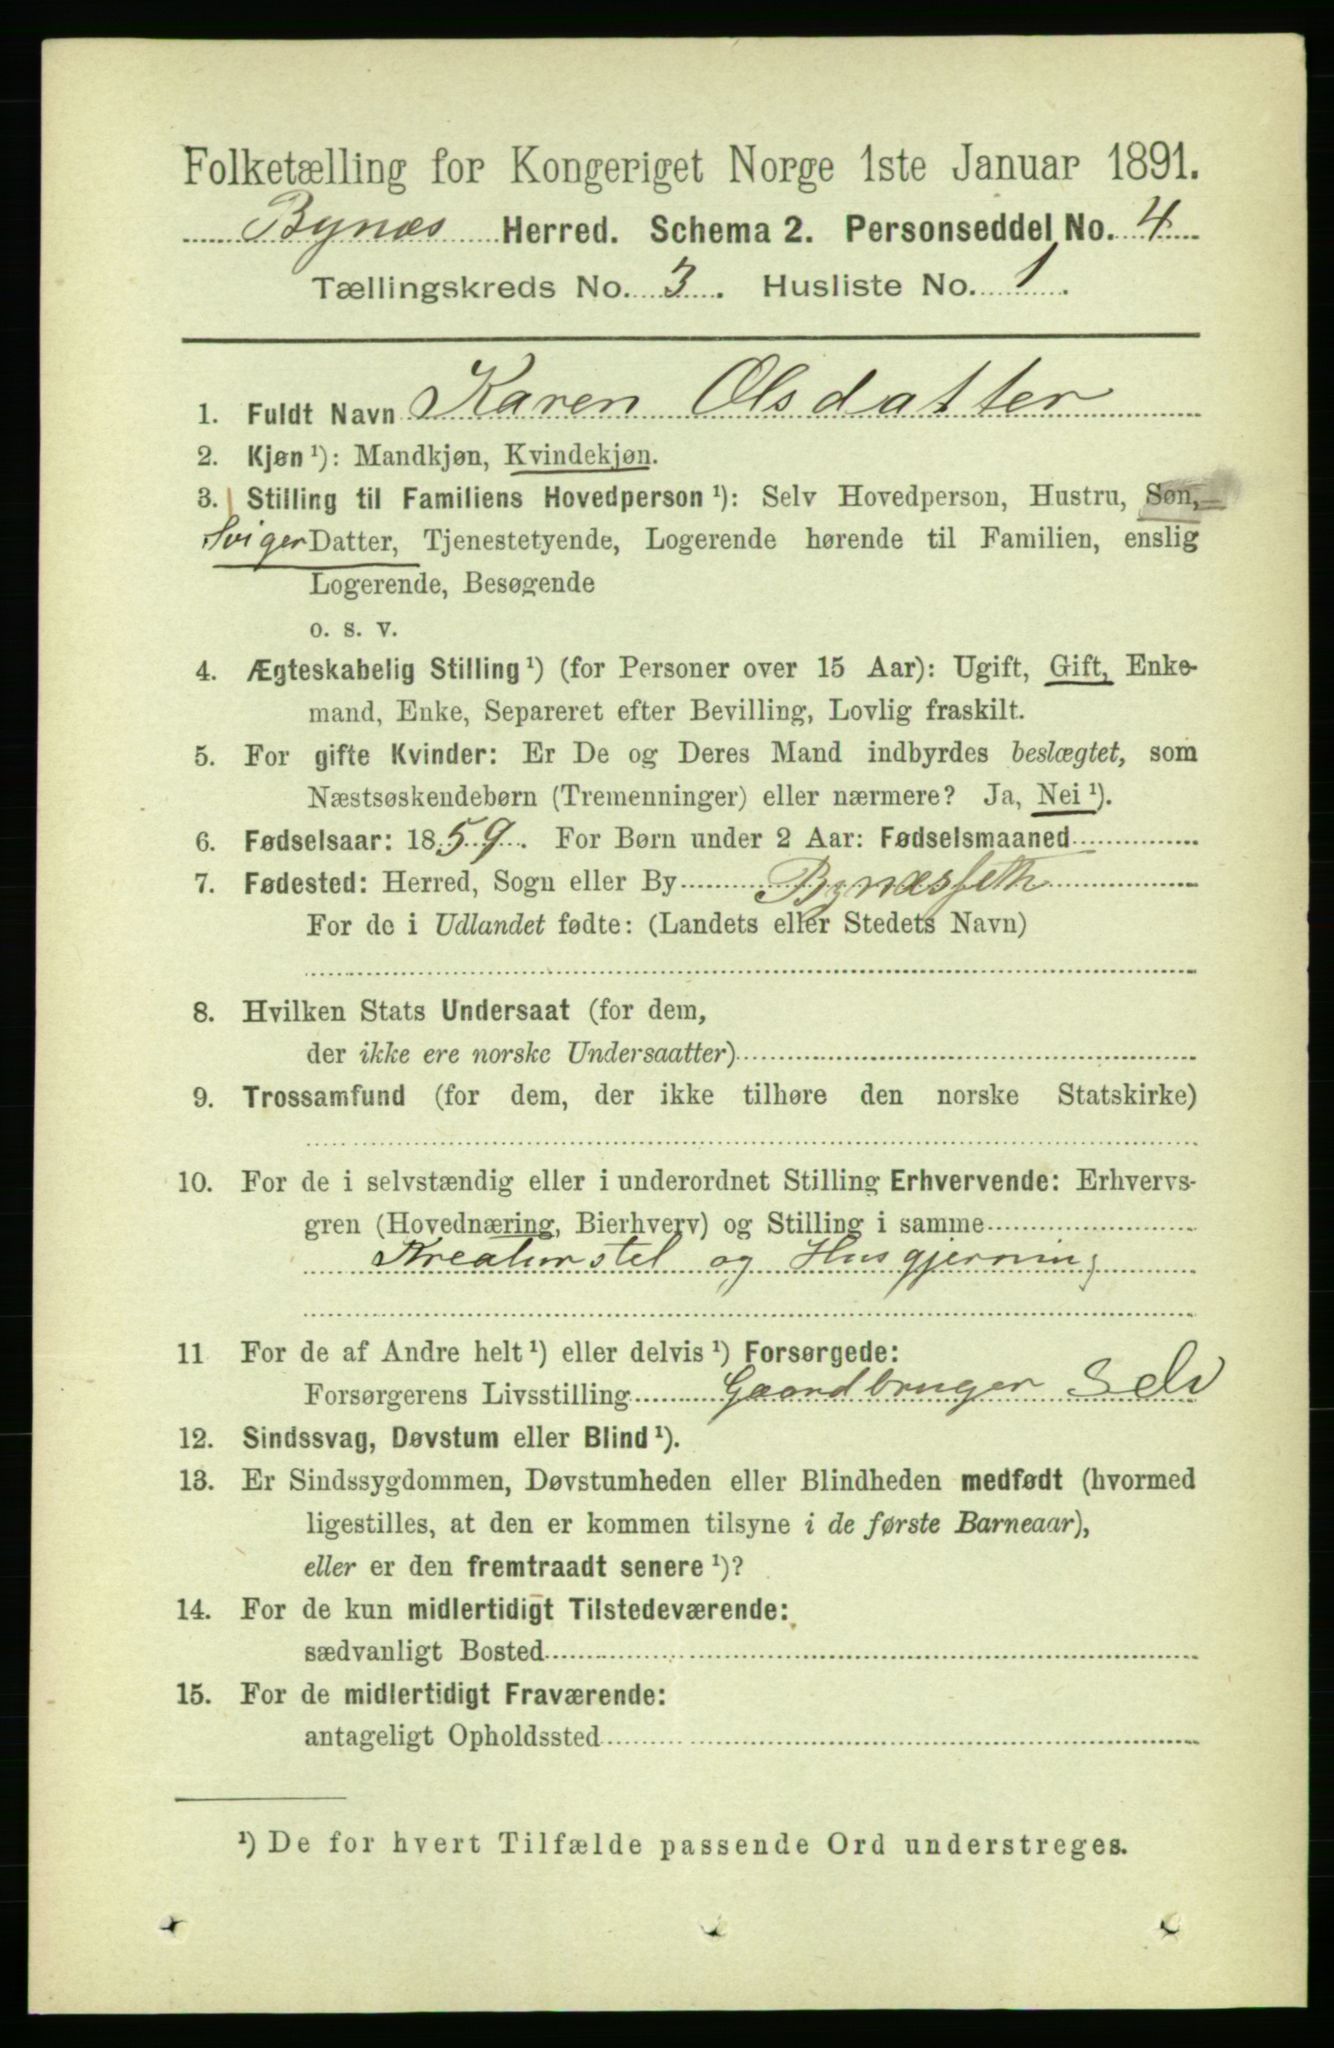 Folketælling for Kongeriget Norge 1ste Januar 1891.
Bynæs Herred. Schema 2. Personseddel No. 4
Tællingskreds No. 3. Husliste No. 1.
1. Fuldt Navn Karen Olsdatter
2. Kjøn ¹): Mandkjøn, Kvindekjøn.
3. Stilling til Familiens Hovedperson ¹): Selv Hovedperson, Hustru, Søn,
Sviger Datter, Tjenestetyende, Logerende hørende til Familien, enslig
Logerende, Besøgende
o. s. v.
4. Ægteskabelig Stilling ¹) (for Personer over 15 Aar): Ugift, Gift, Enke-
mand, Enke, Separeret efter Bevilling, Lovlig fraskilt.
5. For gifte Kvinder: Er De og Deres Mand indbyrdes beslægtet, som
Næstsøskendebørn (Tremenninger) eller nærmere? Ja, Nei ¹).
6. Fødselsaar: 1859. For Børn under 2 Aar: Fødselsmaaned
7. Fødested: Herred, Sogn eller By
For de i Udlandet fødte: (Landets eller Stedets Navn)
8. Hvilken Stats Undersaat (for dem,
der ikke ere norske Undersaatter)
9. Trossamfund (for dem, der ikke tilhøre den norske Statskirke)
10. For de i selvstændig eller i underordnet Stilling Erhvervende: Erhvervs-
gren (Hovednæring, Bierhverv) og Stilling i samme
Kreaturstel og Husgjerning
11 For de af Andre helt ¹) eller delvis ¹) Forsørgede:
Forsørgerens Livsstilling Gaardbruger Selv
12. Sindssvag, Døvstum eller Blind ¹).
13. Er Sindssygdommen, Døvstumheden eller Blindheden medfødt (hvormed
ligestilles, at den er kommen tilsyne i de første Barneaar),
eller er den fremtraadt senere ¹)?
14. For de kun midlertidigt Tilstedeværende:
sædvanligt Bosted
15. For de midlertidigt Fraværende:
antageligt Opholdssted
¹) De for hvert Tilfælde passende Ord understreges.